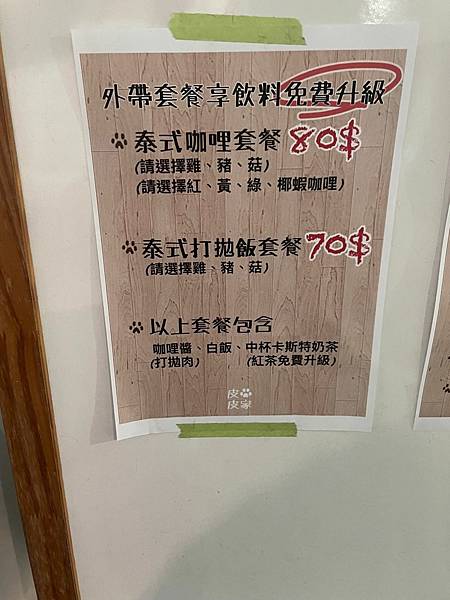 外帶套餐享飲料免費升級
泰式咖哩套餐 80$
(請選擇雞、豬、菇)
(請選擇紅、黃、綠、椰蝦咖哩)
泰式打拋飯套餐 70$
(請選擇雞、豬、菇)
以上套餐包含
咖哩醬、白飯、中杯卡斯特奶茶
(打拋肉) (紅茶免費升級)
皮
皮家